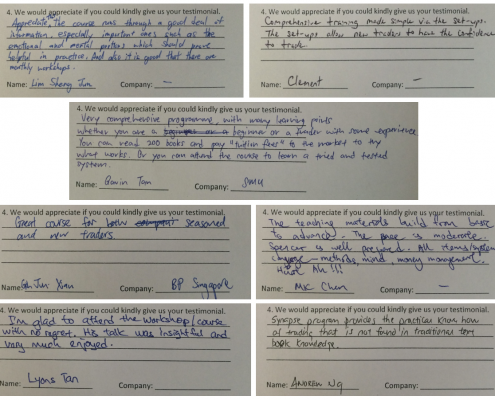 4. We would appreciate if you could kindly give us your testimonial.
Appreciate the course runs through a good deal of
information, especially important ones such as the
emotional and mental portions which should prove
helpful in practice. And also it is good that there are
monthly workshops.
Name: Lim Sheng Jun Company: –
4. We would appreciate if you could kindly give us your testimonial.
Comprehensive training made simple via the set-ups.
The set-ups allow new traders to have the confidence
to trade.
Name: Clement Company: –
4. We would appreciate if you could kindly give us your testimonial.
Very comprehensive programme, with many learning points
whether you are a beginner or a trader with some experience
You can read 200 books and pay "tuition fees" to the market to try
what works. Or you can attend the course to learn a tried and tested
system.
Name: Gavin Tan Company: SMU
4. We would appreciate if you could kindly give us your testimonial.
Great course for both seasoned
and new traders
Name: Jun Company: BP Singapore
4. We would appreciate if you could kindly give us your testimonial.
The teaching materials build from basic
to advanced. The pace is moderate.
Spencer is well prepared. All items/system
methods, mind, money management.
Name: MK Chan Company: –
4. We would appreciate if you could kindly give us your testimonial.
I'm glad to attend the workshop/course
with no regret. His talk was insightful and
very much enjoyed.
Name: Lyons Tan Company:
4. We would appreciate if you could kindly give us your testimonial.
Synapse program provides the practical know how
of trading that is not found in traditional text
book knowledge.
Name: Andrew Ng Company: